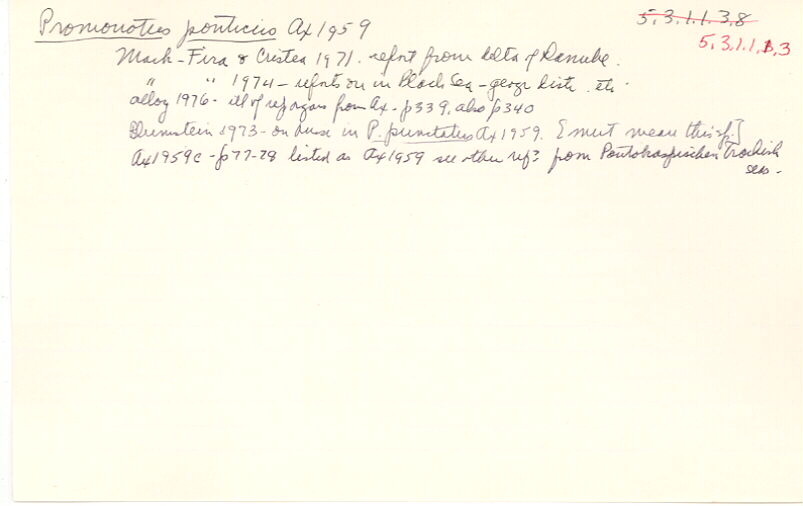 Promonotus ponticus Ax 1959
5.3.1.1.3.8
5.3.1.1.3
Mack-Fira & Cristea 1971. report from delta of Danube.
" " 1974 - reports on in Black Sea - geogr distr. etc.
alloy 1976 - ill of rep organs from Ax - p339, also p340
1973 - on in P. punctatus Ax 1959. [must mean this sp.]
Ax 1959c - p77-78 listed as Ax 1959 see other ref? from Pontokaspischen
seas -